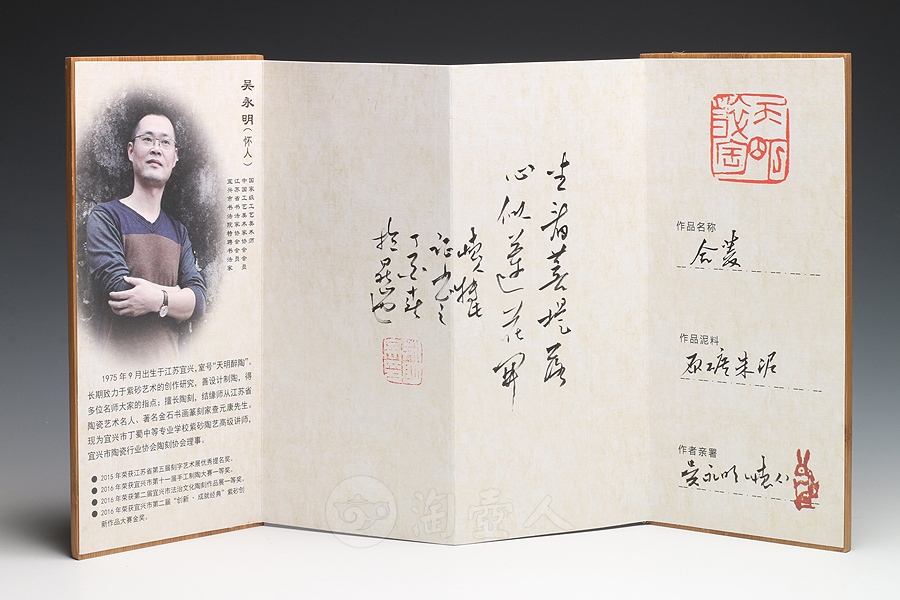 吴永明(怀人)
国家级工艺美术师
中国工艺美术家协会会员
江苏省书法家协会会员
宜兴市书法院特聘书法家
1975年9月出生于江苏宜兴,室号“天明醉陶”。
长期致力于紫砂艺术的创作研究,善设计制陶,得
多位名师大家的指点;擅长陶刻,结缘师从江苏省
陶瓷艺术名人、著名金石书画篆刻家查元康先生。
现为宜兴市丁蜀中等专业学校紫砂陶艺高级讲师,
宜兴市陶瓷行业协会陶刻协会理事。
● 2015年荣获江苏省第五届刻字艺术展优秀提名奖。
● 2016年荣获宜兴市第十一届手工制陶大赛一等奖。
● 2016年荣获第二届宜兴市法治文化陶刻作品展一等奖。
● 2016年荣获宜兴市第二届“创新、成就经典”紫砂创
新作品大赛金奖。
坐看菩提落
心似莲花开
丁酉春
作品名称
作品泥料
朱泥
作者亲署
吴永明
淘壶人